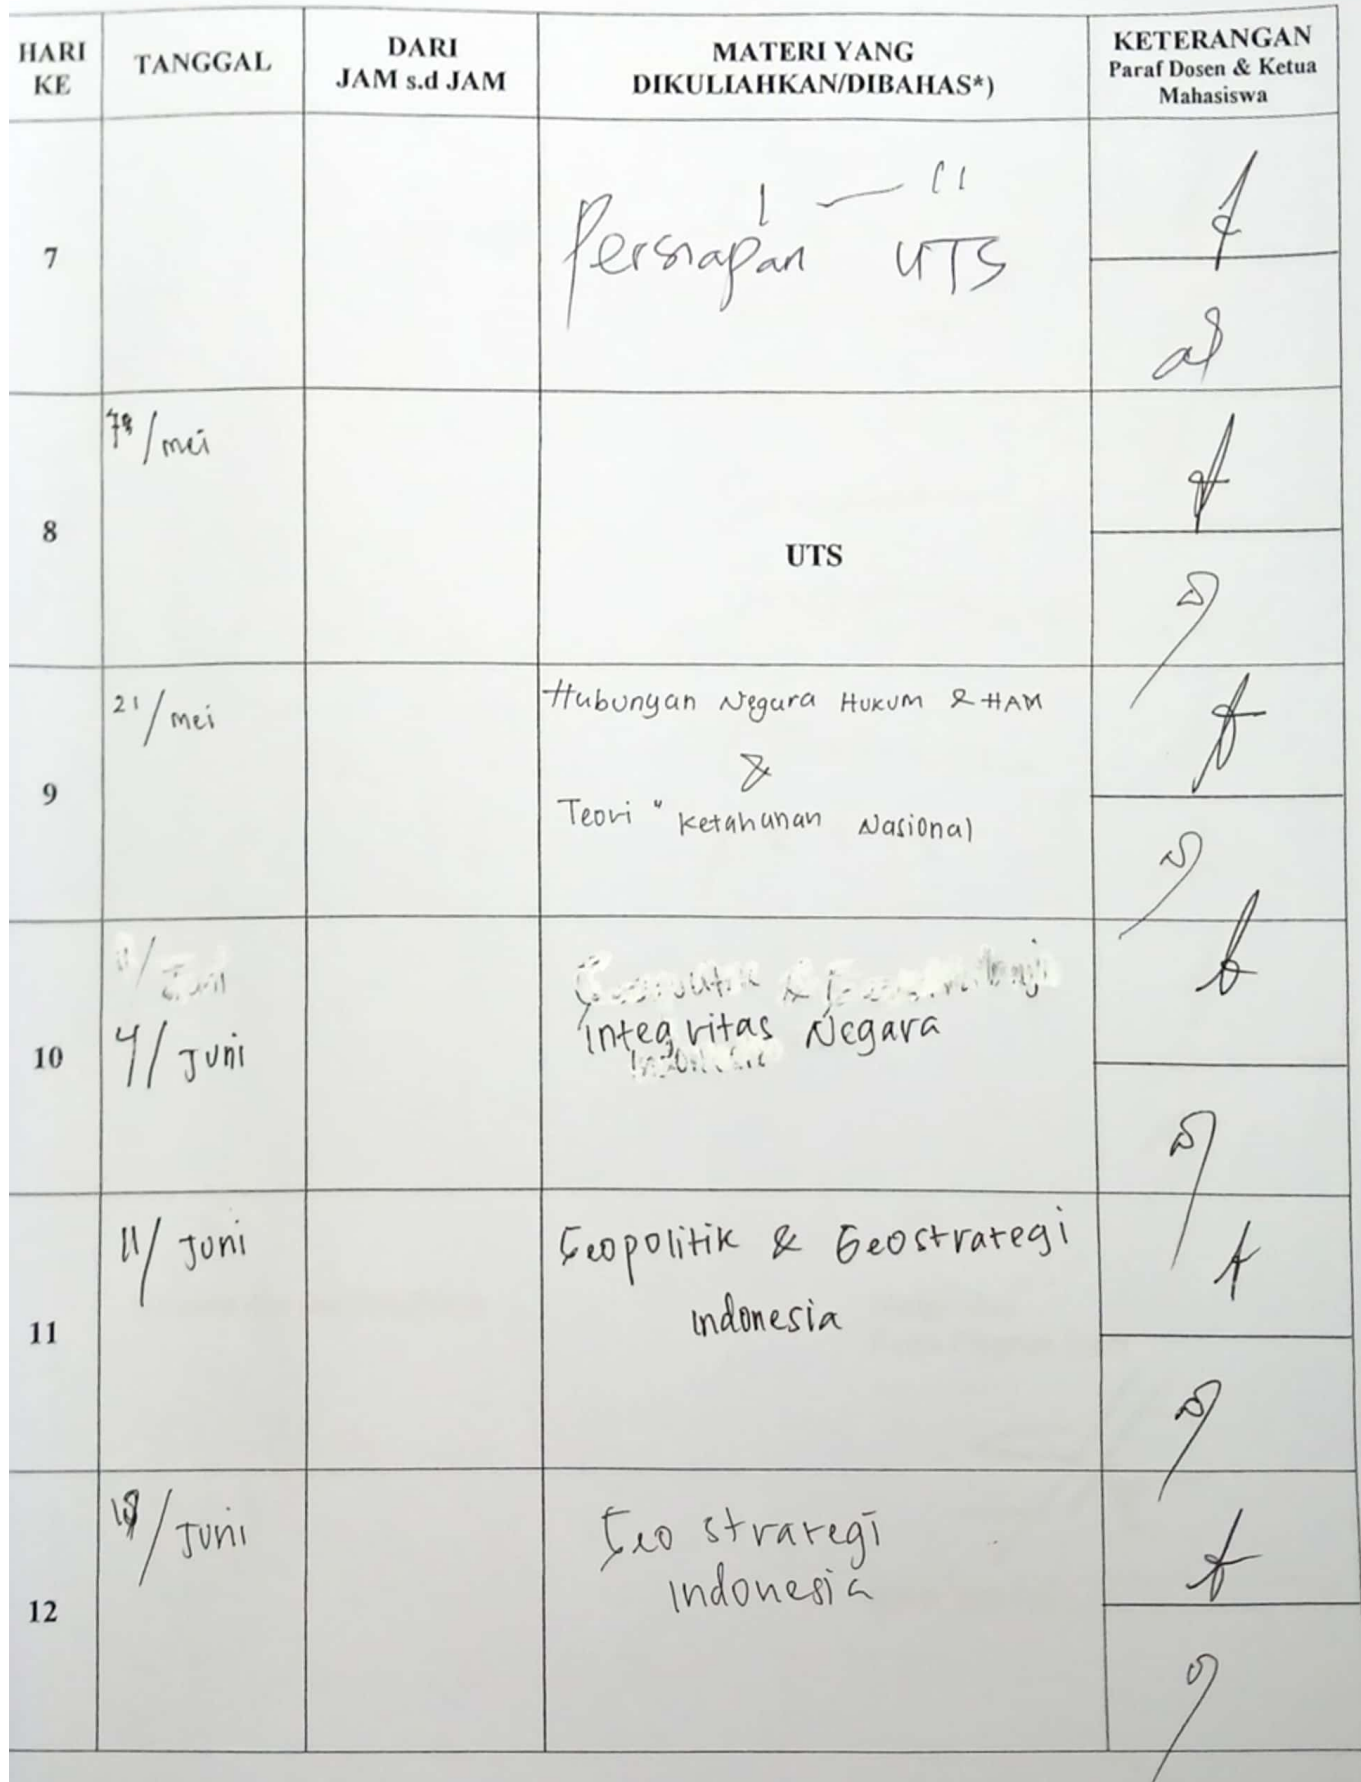 HARI KE
TANGGAL
DARI
JAM s.d JAM
MATERI YANG
DIKULIAHKAN/DIBAHAS*)
KETERANGAN
Paraf Dosen & Ketua
Mahasiswa
7
Persiapan UTS
8
/ mei
UTS
9
21/mei
Hubungan Negara Hukum & HAM
&
Teori " Ketahanan Nasional
10
11/Juni
4/Juni
Integritas Negara
11
11/Juni
Geopolitik & Geostrategi
indonesia
12
18/Juni
Geo strategi
indonesia